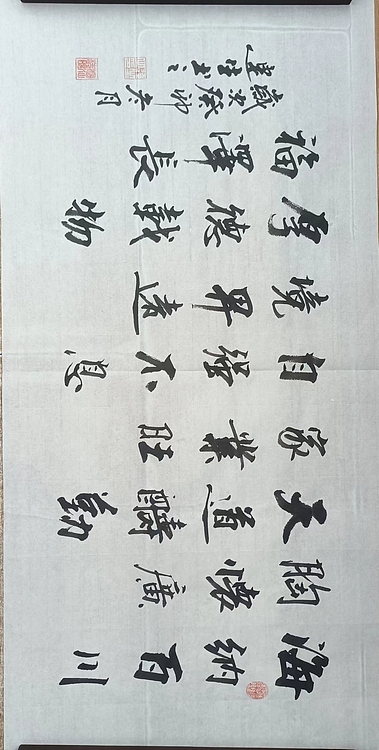 海納百川
胸懷廣
天道酬勤
家業旺
自強不息
境界遠
厚德載物
福澤長
歲次癸卯冬月